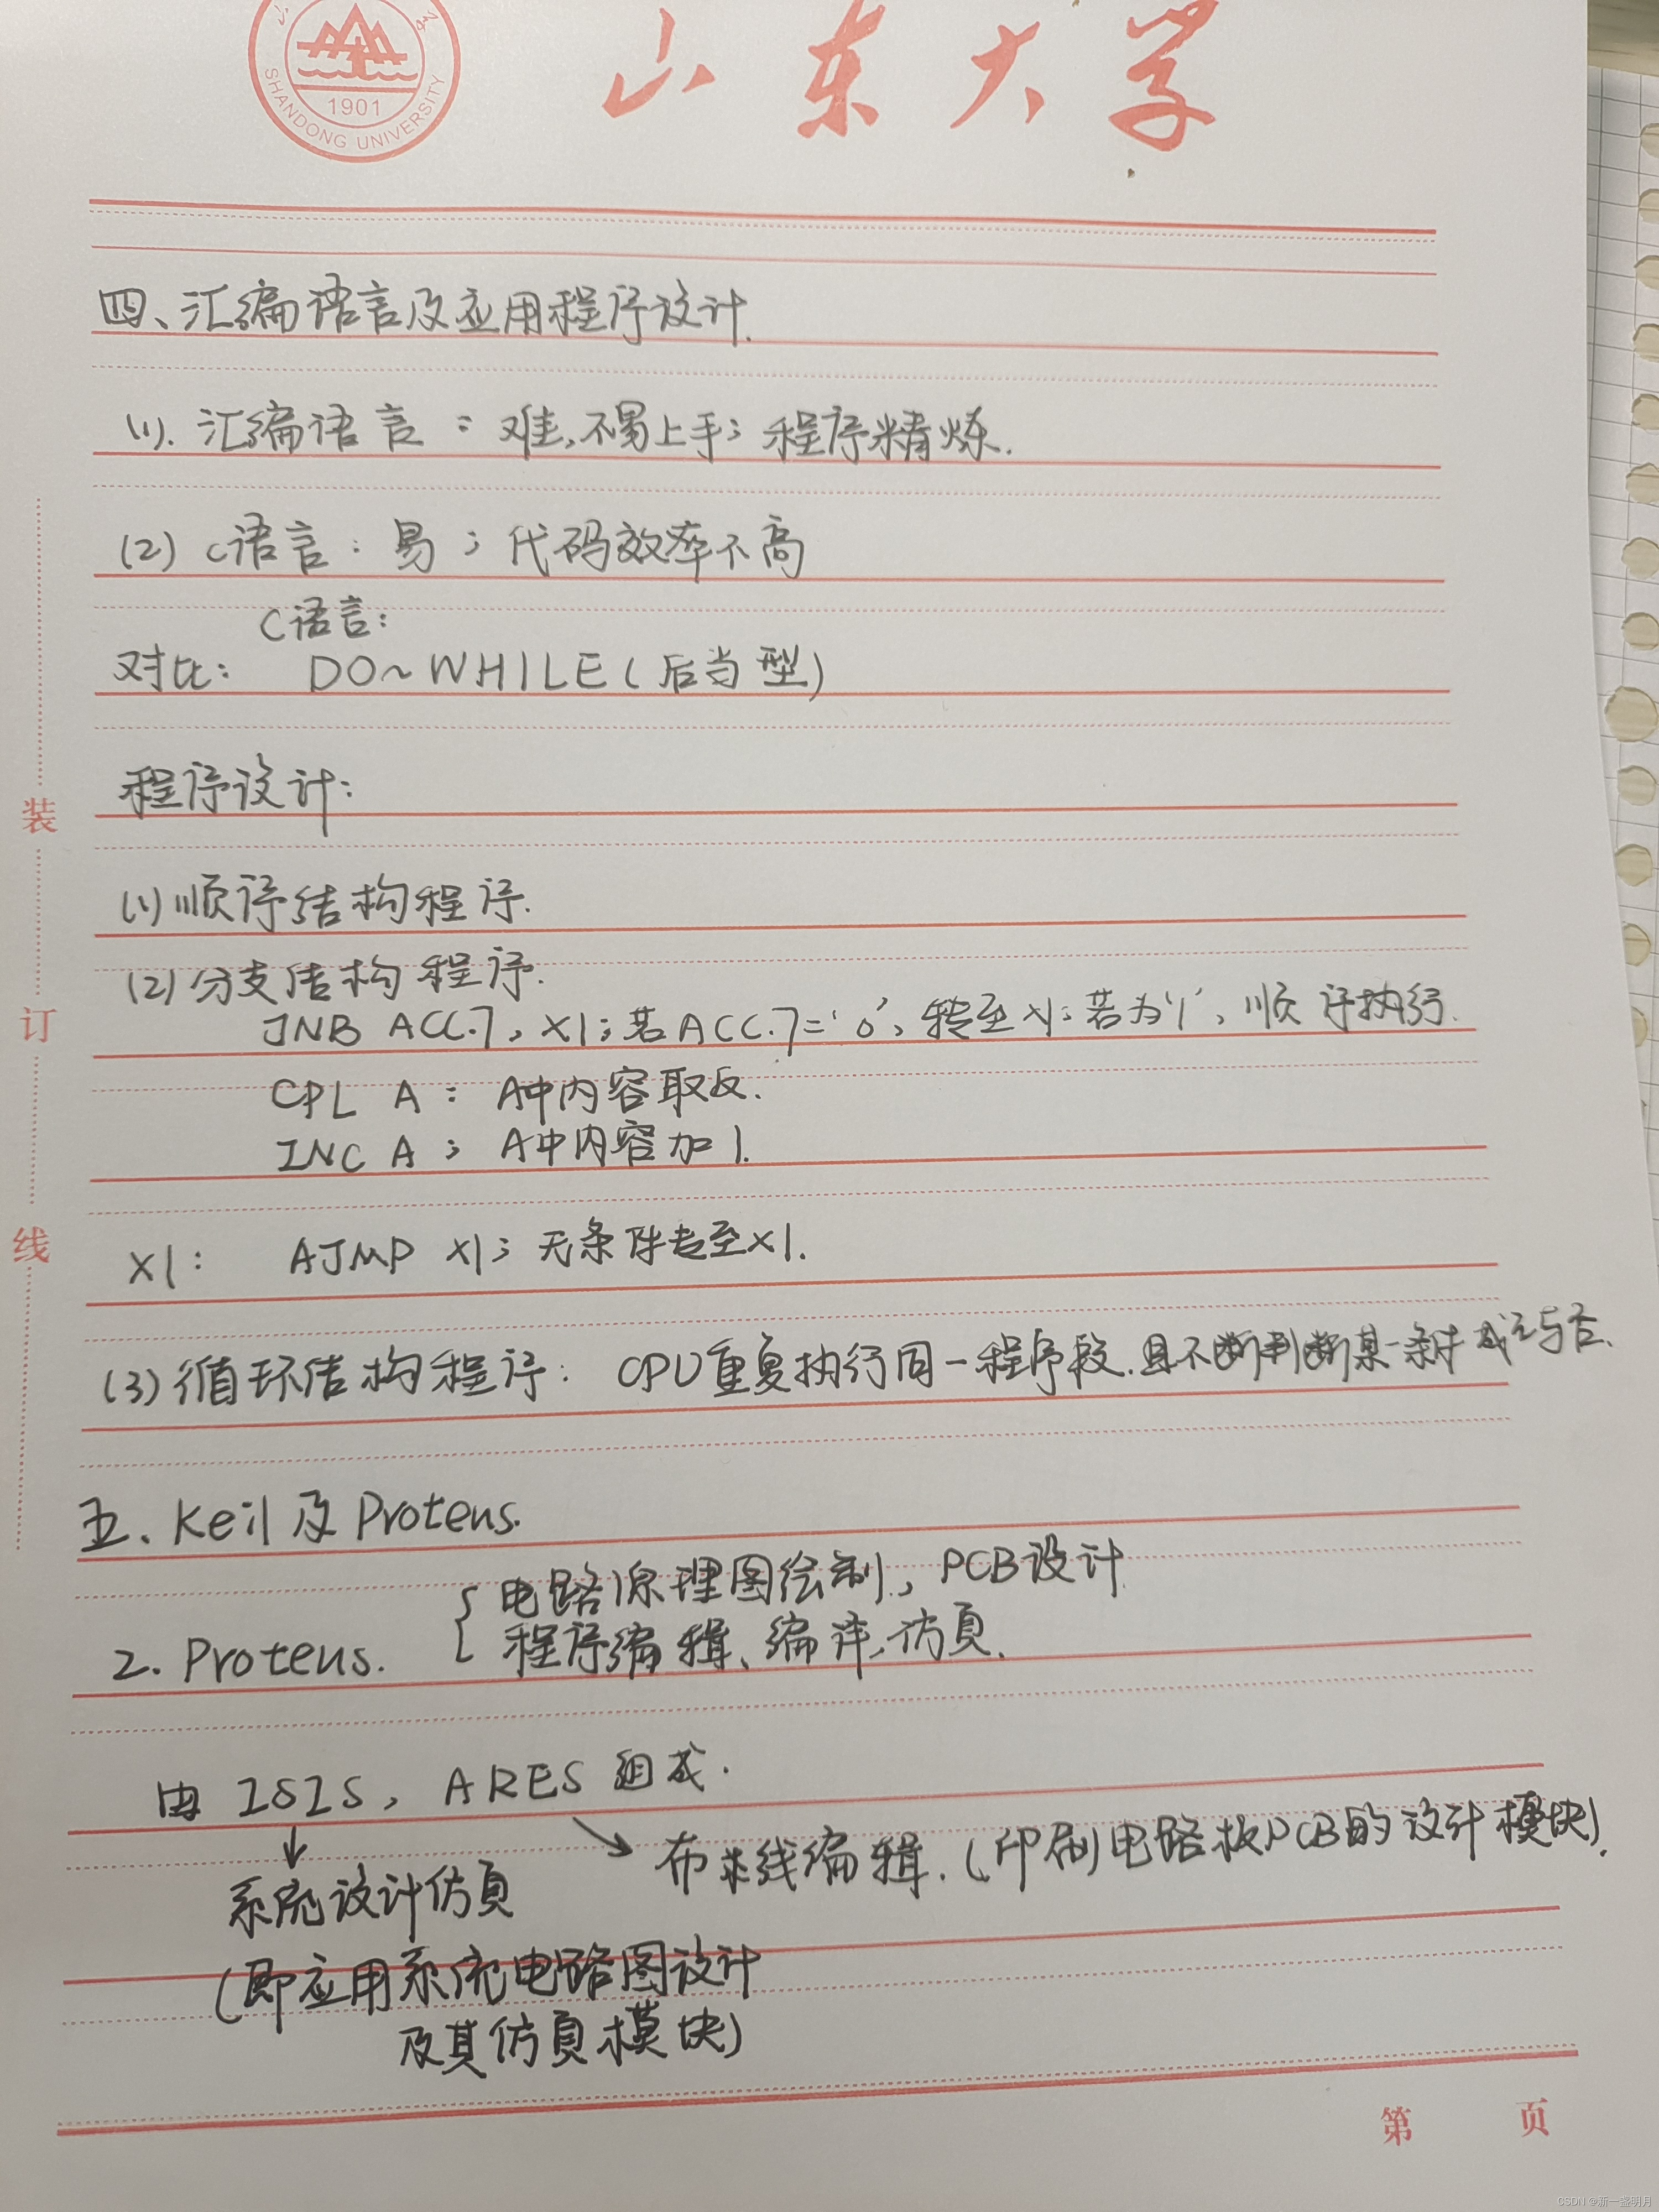 1901
SHANDONG UNIVERSITY
山东大学
四、汇编语言及应用程序设计.
(1). 汇编语言：难,不易上手；程序精炼.
(2) C语言：易；代码效率不高
C语言：
对比： DO~WHILE(后当型)
程序设计：
(1)顺序结构程序.
(2)分支结构程序.
JNB ACC.7, X1;若ACC.7='0',转至X1;若为'1',顺序执行.
CPL A：A中内容取反.
INC A；A中内容加1.
X1： AJMP X1；无条件转至X1.
(3)循环结构程序：CPU重复执行同一程序段.且不断判断某一条件成立与否.
五、Keil及Proteus.
电路原理图绘制、PCB设计
2. Proteus. 程序编辑、编译、仿真.
由 ISIS, ARES 组成.
↓ ↘ 布线编辑.(印刷电路板PCB的设计模块).
系统设计仿真
(即应用系统电路图设计
及其仿真模块)
装
订
线
第 页
CSDN @新一盏明月